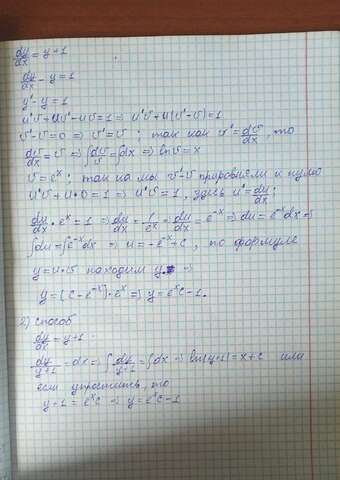 dy/dx = y+1
dy/dx - y = 1
y' - y = 1
u'v+uv'-uv=1 ⇒ u'v+u(v'-v)=1
v'-v=0 ⇒ v'=v ; так как v'=dv/dx, то
dv/dx = v ⇒ ∫dv/v = ∫dx ⇒ ln v = x
v = e^x ; так как мы v'-v приравняли к нулю
u'v+u·0=1 ⇒ u'v=1 , здесь u'=du/dx ;
du/dx · e^x = 1 ⇒ du/dx = 1/e^x ⇒ du/dx = e^-x ⇒ du = e^-x dx ⇒
∫du = ∫e^-x dx ⇒ u = -e^-x + c , по формуле
y = u·v находим y ⇒
y = (c - e^-x)·e^x ⇒ y = e^x c - 1.
2) способ
dy/dx = y+1
dy/y+1 = dx ⇒ ∫dy/y+1 = ∫dx ⇒ ln(y+1) = x+c или
если упростить, то
y+1 = e^x c ⇒ y = e^x c - 1